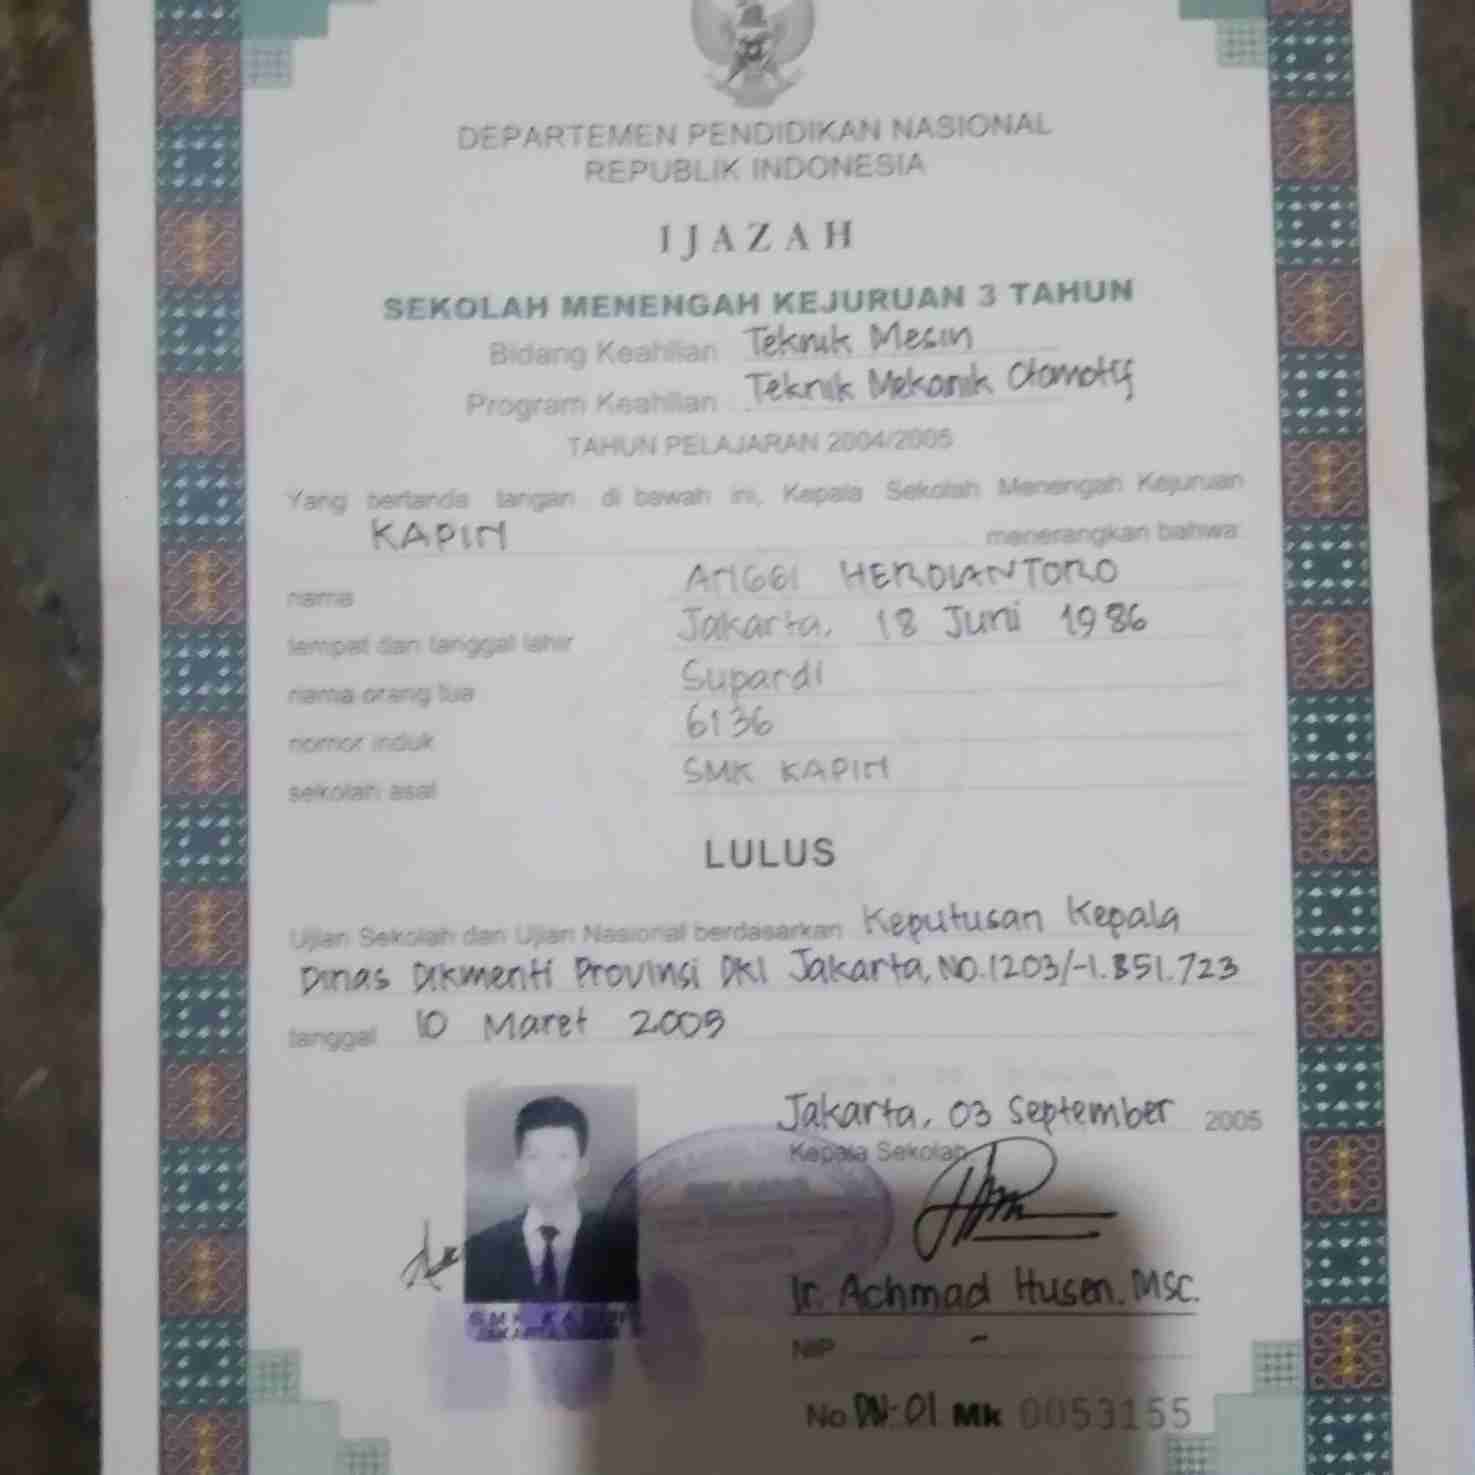 DEPARTEMEN PENDIDIKAN NASIONAL
REPUBLIK INDONESIA
IJAZAH
SEKOLAH MENENGAH KEJURUAN 3 TAHUN
Bidang Keahlian Teknik Mesin
Program Keahlian Teknik Mekanik Otomotif
TAHUN PELAJARAN 2004/2005
Yang bertanda tangan di bawah ini, Kepala Sekolah Menengah Kejuruan
KAPIN menerangkan bahwa:
nama ANGGI HERDIANTORO
tempat dan tanggal lahir Jakarta, 18 Juni 1986
nama orang tua Supardi
nomor induk 6136
sekolah asal SMK KAPIN
LULUS
Ujian Sekolah dan Ujian Nasional berdasarkan Keputusan Kepala
Dinas Dikmenti Provinsi DKI Jakarta, NO.1203/-1.851.723
tanggal 10 Maret 2005
Jakarta, 03 September 2005
Kepala Sekolah,
Ir. Achmad Husen. MSc.
NIP -
SMK KAPIN
JAKARTA
No DN-01 Mk 0053155